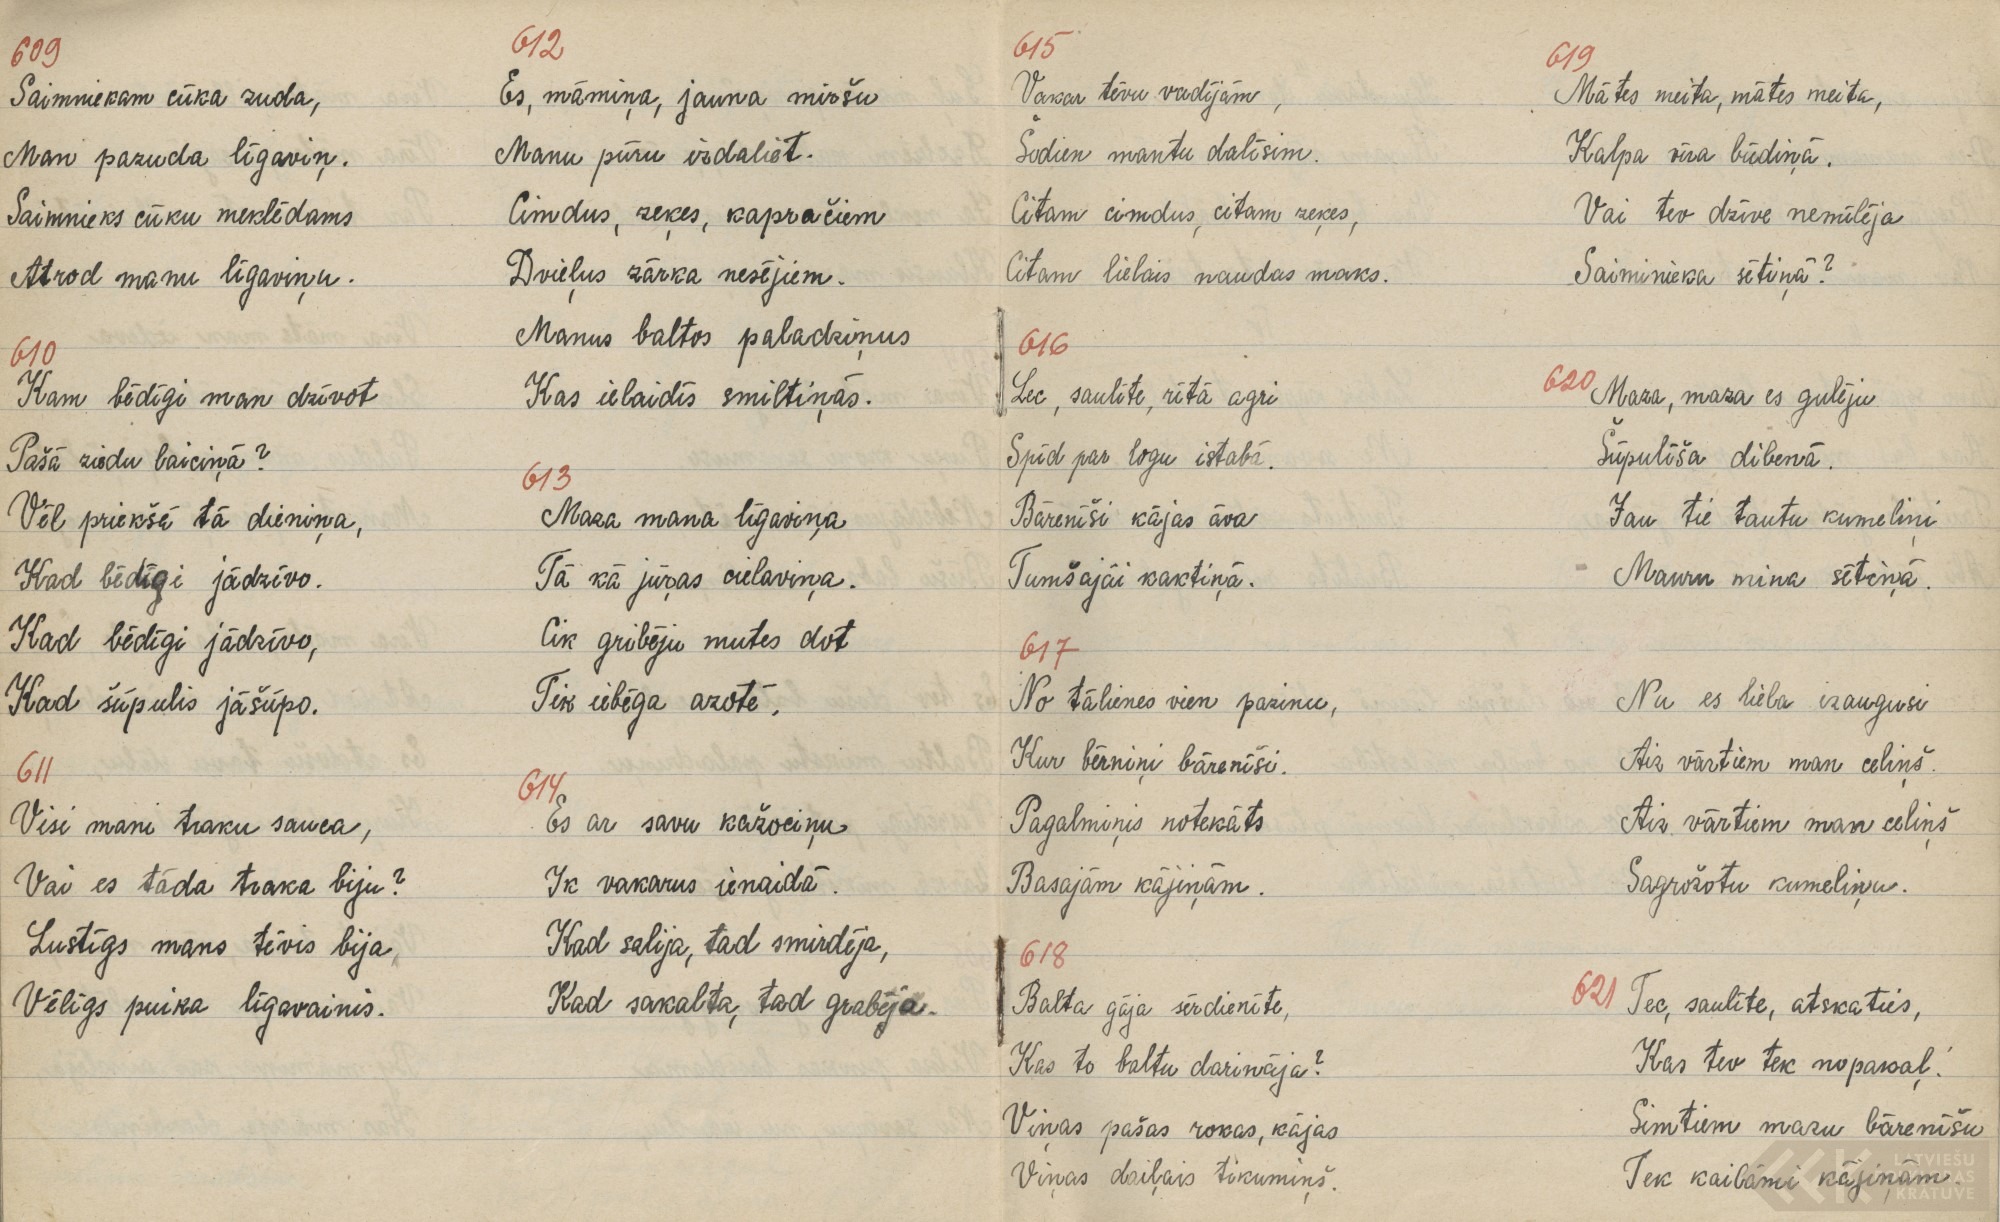 609
Saimniekam cūka zuda,
Man pazuda līgaviņ.
Saimnieks cūku meklēdams
Atrod manu līgaviņu.
610
Kam bēdīgi man dzīvot
Pašā ziedu laiciņā?
Vēl priekšā tā dieniņa,
Kad bēdīgi jādzīvo.
Kad bēdīgi jādzīvo,
Kad šūpulis jāšūpo.
611
Visi mani traku sauca,
Vai es tāda traka biju?
Lustīgs mans tēvis bija,
Vēlīgs puika līgavainis.
612
Es, māmiņa, jauna miršu
Manu pūru izdaliet.
Cimdus, zeķes, kapračiem
Dvieļus zārka nesējiem.
Manus baltos paladziņus
Kas ielaidīs smiltiņās.
613
Maza mana līgaviņa
Tā kā jūŗas cielaviņa.
Cik gribēju mutes dot
Tik iebēga azotē.
614
Es ar savu kažociņu
Ik vakarus ienaidā.
Kad salija, tad smirdēja,
Kad sakalta, tad grabēja.
615
Vakar tēvu vadījām,
Šodien mantu dalīsim.
Citam cimdus, citam zeķes,
Citam lielais naudas maks.
616
Lec, saulīte, rītā agri
Spīd par logu istabā.
Bārenīši kājas āva
Tumšajāi kaktiņā.
617
No tālienes vien pazinu,
Kur bērniņi bārenīši.
Pagalmiņis notekāts
Basajām kājiņām.
618
Balta gāja sērdienīte,
Kas to baltu darināja?
Viņas pašas rokas, kājas
Viņas daiļais tikumiņš.
619
Mātes meita, mātes meita,
Kalpa vīra būdiņā.
Vai tev dzīve nemīlēja
Saiminieka sētiņā?
620
Maza, maza es gulēju
Šūpulīša dibenā.
Jau tie tautu kumeliņi
Mauru mina sētiņā.
Nu es liela izaugusi
Aiz vārtiem man celiņš.
Aiz vārtiem man celiņš
Sagrožotu kumeliņu.
621
Tec, saulīte, atskaties,
Kas tev tek nopakaļ!
Simtiem mazu bārenīšu
Tek kailāmi kājiņām.
LATVIEŠU
FOLKLORAS
KRATUVE